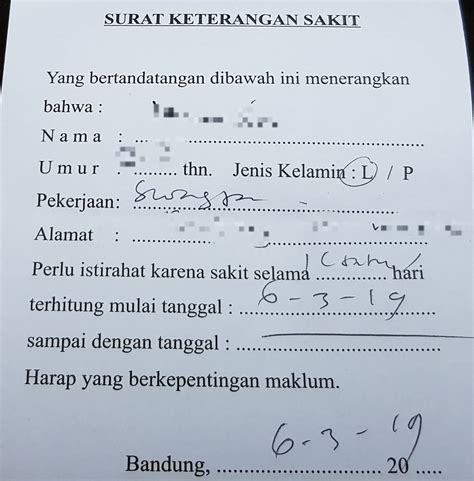 SURAT KETERANGAN SAKIT
Yang bertandatangan dibawah ini menerangkan
bahwa :
Nama : ............
Umur : ............ thn. Jenis Kelamin : L / P
Pekerjaan: Swasta
Alamat : ............
Perlu istirahat karena sakit selama 1 (satu) hari
terhitung mulai tanggal : 6-3-19
sampai dengan tanggal : ............
Harap yang berkepentingan maklum.
6-3-19
Bandung, ............ 20 .....